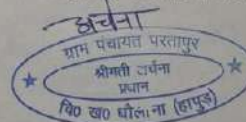 अर्चना
ग्राम पंचायत परतापुर
श्रीमती अर्चना
प्रधान
वि० ख० धौलाना (हापुड़)